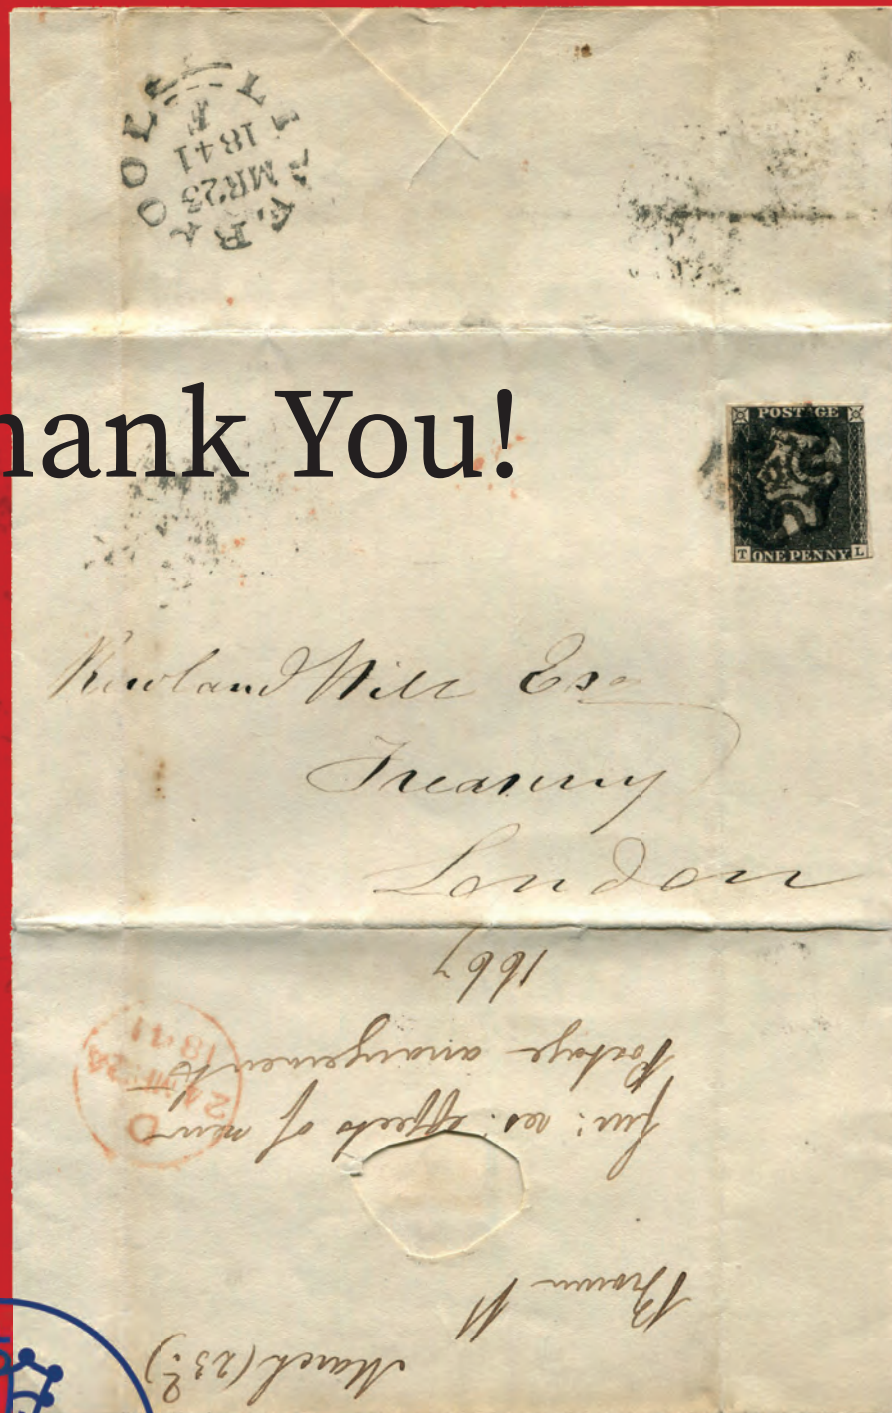 LIVERPOOL
MR23
1841
hank You!
POSTAGE
T ONE PENNY L
Rowland Hill Esq
Treasury
London
1667
Postage arrangements
effects of new
Brown W
March (23?)